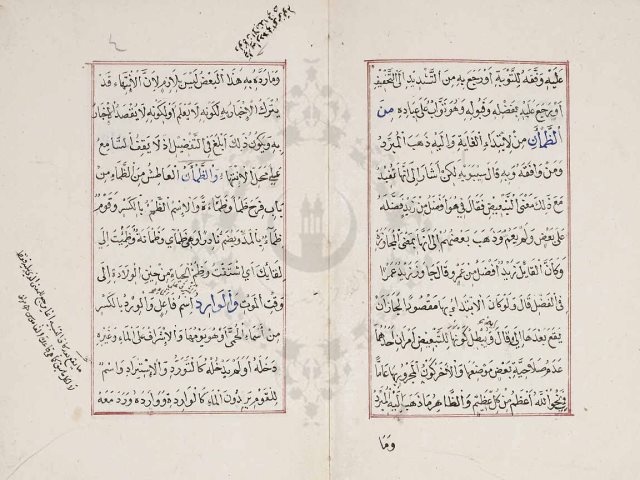 عليه وفقه للتوبة أو رجع به من التشديد إلى التخفيف
أو رجع عليه بفضله وقبوله وهو تواب على عباده من
الظمآن من لابتداء الغاية واليه ذهب المبرد
ومن وافقه وبه قال سيبويه لكن أشار إلى أنها تفيد
مع ذلك معنى التبعيض فقال في هو أفضل من زيد فضله
على بعض ولم يعم وذهب بعضهم إلى أنها بمعنى المجاوزة
وكأن القائل زيد أفضل من عمرو قال جاوز زيد عمرا
في الفضل قال ولو كان الابتداء بها مقصودا لجاز أن
يقع بعدها إلى قال ويبطل كونها للتبعيض أمران أحدهما
عدم صلاحية بعض موضعها والآخر كون المجرور بها عاما
في نحو الله أعظم من كل عظيم والظاهر ما ذهب إليه المبرد
وما
وما رده به هذا البعض ليس بلازم لأن الانتهاء قد
يترك الإخبار به لكونه لا يعلم أو لكونه لا يقصد الإخبار
به ويكون ذلك أبلغ في التفضيل إذ لا يقف السامع
على محل الانتهاء والظمآن العاطش من الظماء من
باب فرح ظمأ وظماء وظماءة والاسم الظمء بالكسر وقوم
ظماء بالمد ويضم نادر وله وهي ظمأى وظمآنة وظمئت إلى
لقائك أي اشتقت وظمء الحياة من حين الولادة إلى
وقت الموت والوارد اسم فاعل والورد بالكسر
من أسماء الحمى أو هو يومها والإشراف على الماء وغيره
دخله أو لم يدخله كالتورد والاستيراد واسم
للقوم يردون الماء كالواردة ووارده ورد معه